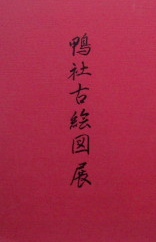 鴨社古絵図展